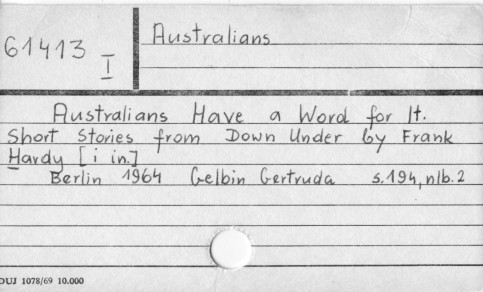 61413 I
Australians
Australians Have a Word for It.
Short Stories from Down Under by Frank
Hardy [i in.]
Berlin 1964 Gelbin Gertruda s.194, nlb. 2
DUJ 1078/69 10.000